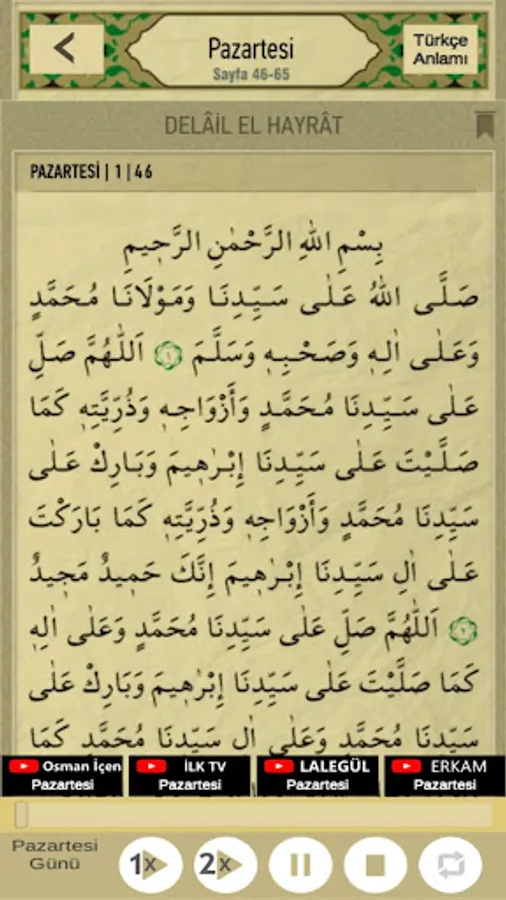 Pazartesi
Sayfa 46-65
Türkçe
Anlamı
DELÂİL EL HAYRÂT
PAZARTESİ | 1 | 46
بِسْمِ اللهِ الرَّحْمٰنِ الرَّح۪يمِ
صَلَّى اللهُ عَلٰى سَيِّدِنَا وَمَوْلَانَا مُحَمَّدٍ
وَعَلٰى اٰلِه۪ وَصَحْبِه۪ وَسَلَّمَ ١ اَللّٰهُمَّ صَلِّ
عَلٰى سَيِّدِنَا مُحَمَّدٍ وَأَزْوَاجِه۪ وَذُرِّيَّتِه۪ كَمَا
صَلَّيْتَ عَلٰى سَيِّدِنَا إِبْرٰه۪يمَ وَبَارِكْ عَلٰى
سَيِّدِنَا مُحَمَّدٍ وَأَزْوَاجِه۪ وَذُرِّيَّتِه۪ كَمَا بَارَكْتَ
عَلٰى اٰلِ سَيِّدِنَا إِبْرٰه۪يمَ إِنَّكَ حَم۪يدٌ مَج۪يدٌ
٢ اَللّٰهُمَّ صَلِّ عَلٰى سَيِّدِنَا مُحَمَّدٍ وَعَلٰى اٰلِه۪
كَمَا صَلَّيْتَ عَلٰى سَيِّدِنَا إِبْرٰه۪يمَ وَبَارِكْ عَلٰى
سَيِّدِنَا مُحَمَّدٍ وَعَلٰى اٰلِ سَيِّدِنَا مُحَمَّدٍ كَمَا
Osman İçen
Pazartesi
İLK TV
Pazartesi
LALEGÜL
Pazartesi
ERKAM
Pazartesi
Pazartesi
Günü
1x
2x